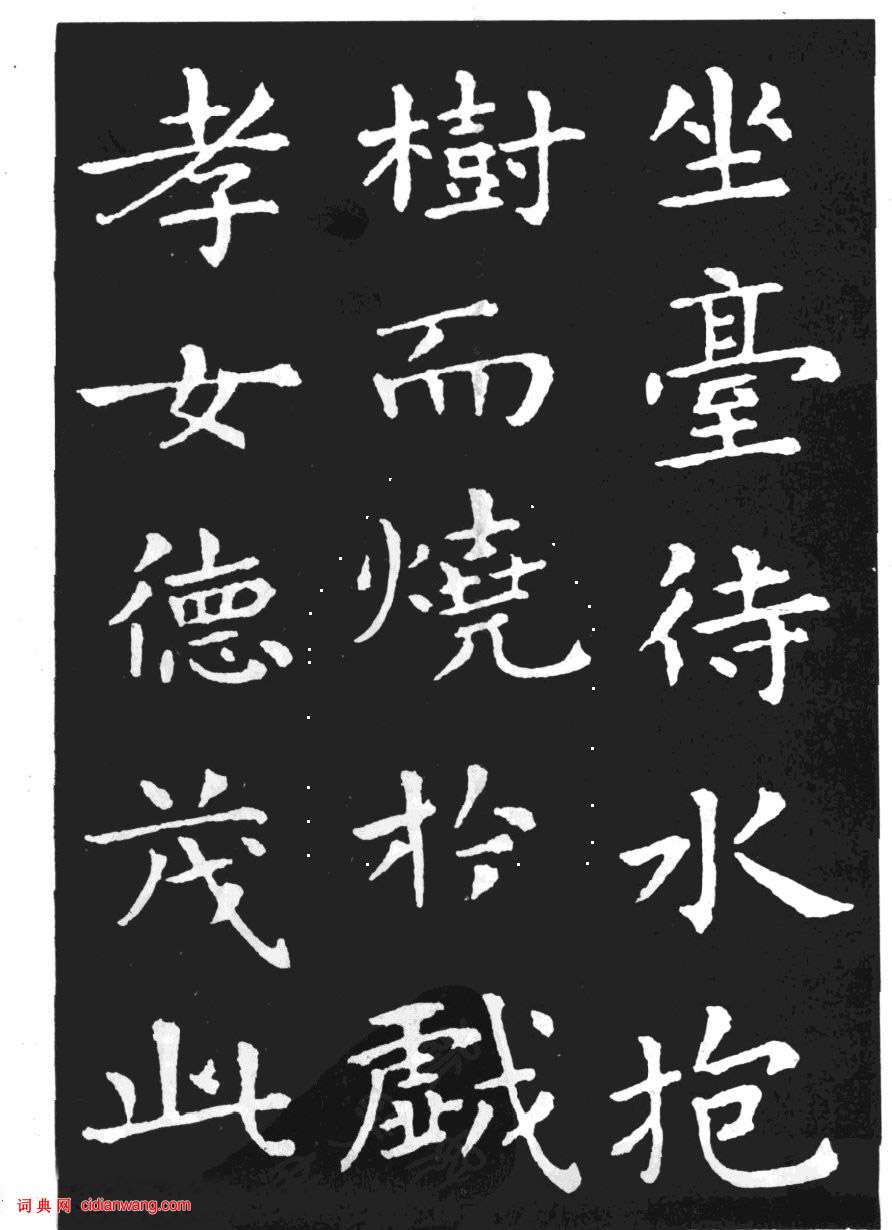 坐臺待水抱
樹而燒於戲
孝女德茂此
词典网 cidianwang.com